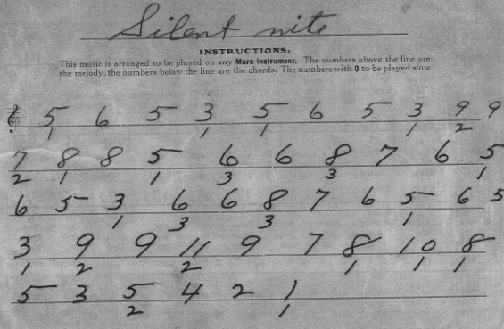 Silent nite
INSTRUCTIONS:
This music is arranged to be played on any Marx Instrument. The numbers above the line are
the melody, the numbers below the line are the chords. The numbers with 0 to be played slow
5 6 5 3 5 6 5 3 9 9
1 1 1 2
7 8 8 5 6 6 8 7 6 5
2 1 1 3 3 1
6 5 3 6 6 8 7 6 5 6 5
1 3 3 1
3 9 9 11 9 7 8 10 8
1 2 2 1 1 1
5 3 5 4 2 1
2 1